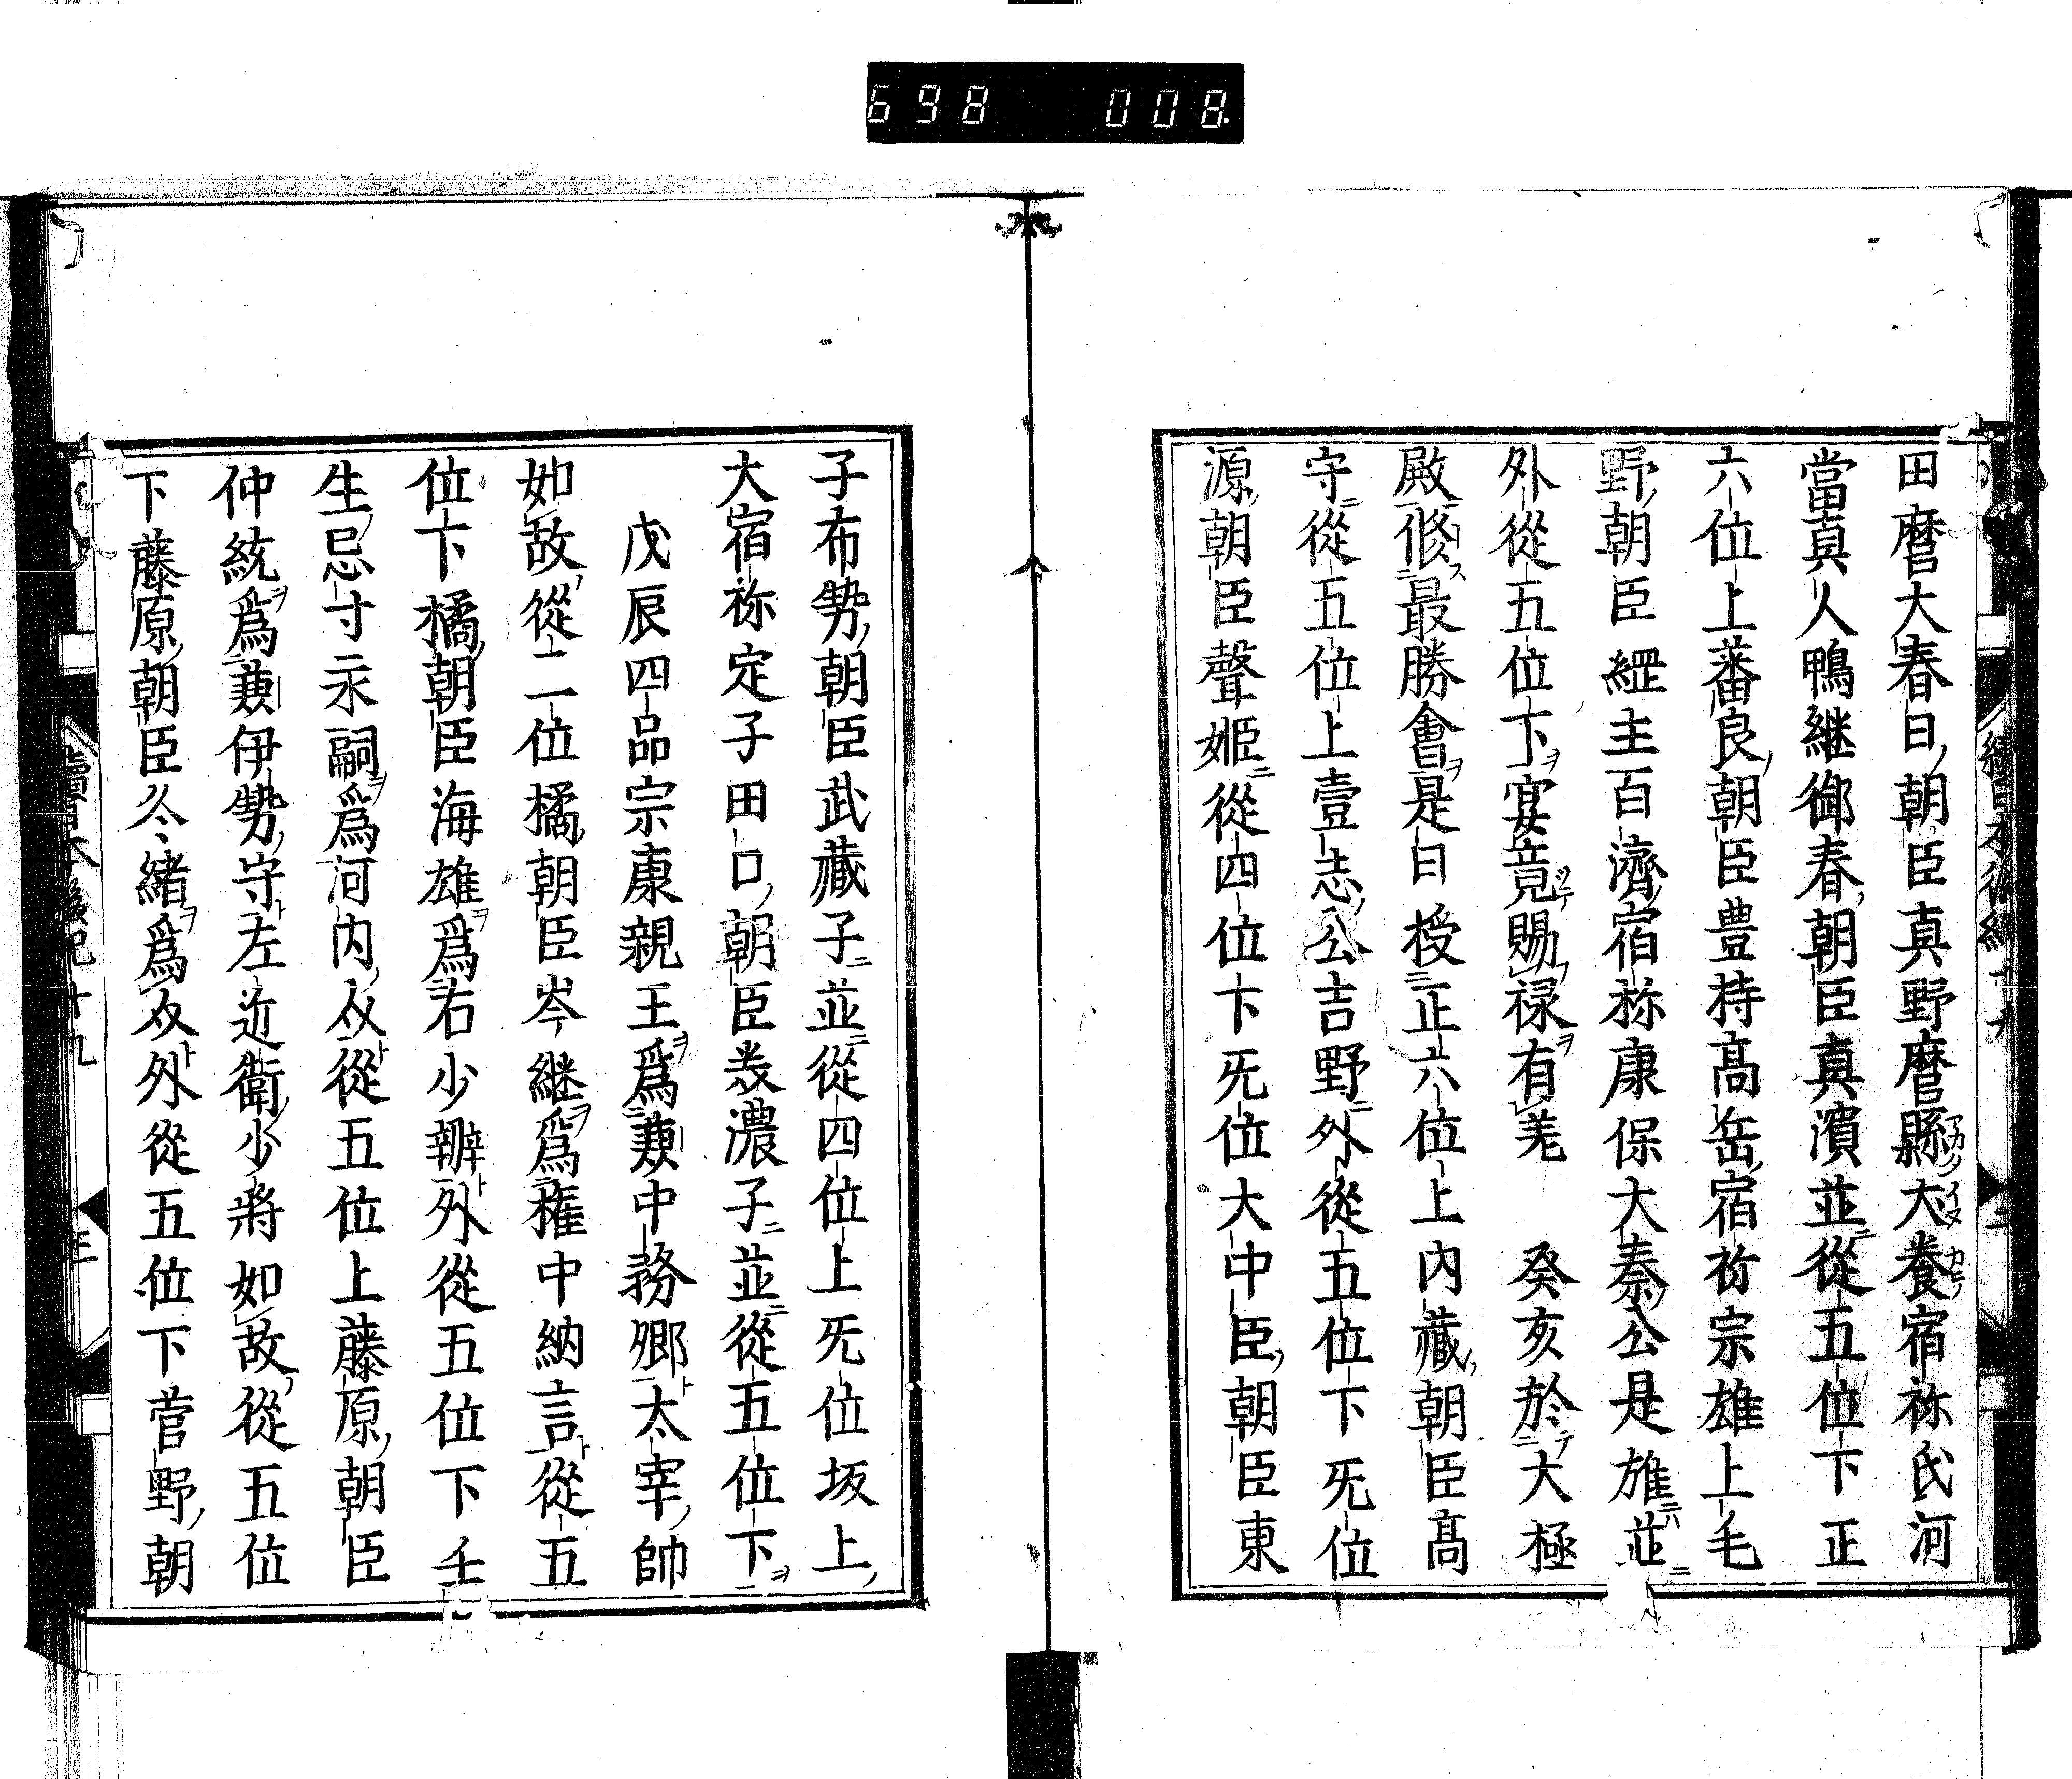 698 008
田麿大春日朝臣真野麿縣大養宿祢氏河
當真人鴨継御春朝臣真濱並從五位下正
六位上蕃良朝臣豊持高岳宿祢宗雄上毛
野朝臣継主百濟宿祢康保大秦公是雄並
外從五位下宴竟賜禄有差　癸亥於大極
殿修最勝會是日授正六位上內藏朝臣高
守從五位上壹志公吉野外從五位下旡位
源朝臣聲姬從四位下旡位大中臣朝臣東
子布勢朝臣武藏子並從四位上旡位坂上
大宿祢定子田口朝臣美濃子並從五位下
戊辰四品宗康親王爲兼中務卿太宰帥
如故從二位橘朝臣岑継爲權中納言從五
位下橘朝臣海雄爲右少辨外從五位下壬
生忌寸永嗣爲河内介從五位上藤原朝臣
仲統爲兼伊勢守左近衛少將如故從五位
下藤原朝臣令緒爲介外從五位下菅野朝
續日本後紀十九
三